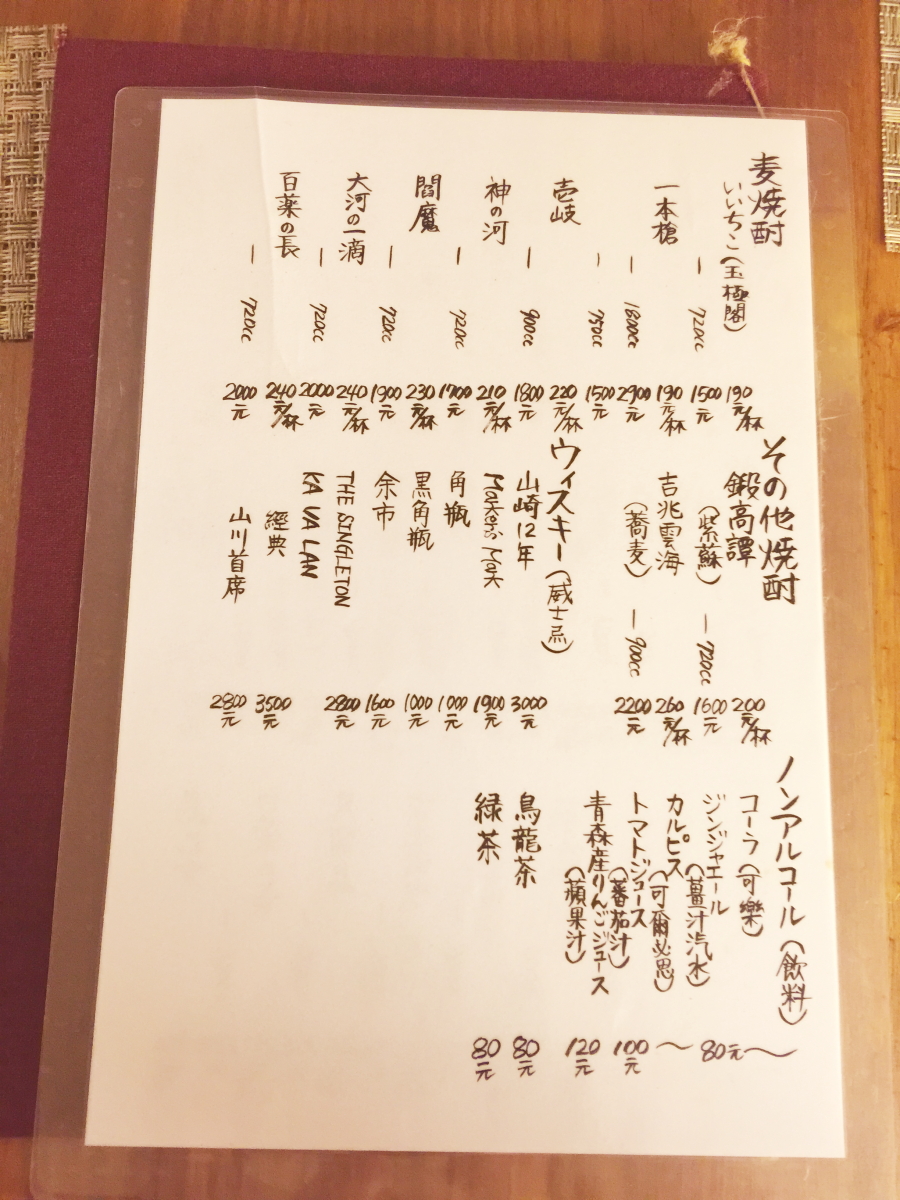 麦焼酎
いいちこ(玉極閣) 190元/杯
— 720cc 1500元
一本槍 190元/杯
— 1800cc 2900元
— 750cc 1500元
壱岐 220元/杯
— 900cc 1800元
神の河 210元/杯
— 720cc 1700元
閻魔 230元/杯
— 720cc 1900元
大河の一滴 240元/杯
— 720cc 2000元
百薬の長 240元/杯
— 720cc 2000元
その他焼酎
鍛高譚 200元/杯
(紫蘇) — 720cc 1600元
吉兆雲海 260元/杯
(蕎麦) — 900cc 2200元
ウィスキー(威士忌)
山崎12年 3000元
Maker's Mak 1900元
角瓶 1000元
黒角瓶 1000元
余市 1600元
THE SINGLETON 2800元
KA VA LAN
經典 3500元
山川首席 2800元
ノンアルコール(飲料)
コーラ(可樂)
ジンジャエール(薑汁汽水) 〜80元〜
カルピス(可爾必思)
トマトジュース(蕃茄汁) 100元
青森産りんごジュース(蘋果汁) 120元
烏龍茶 80元
緑茶 80元